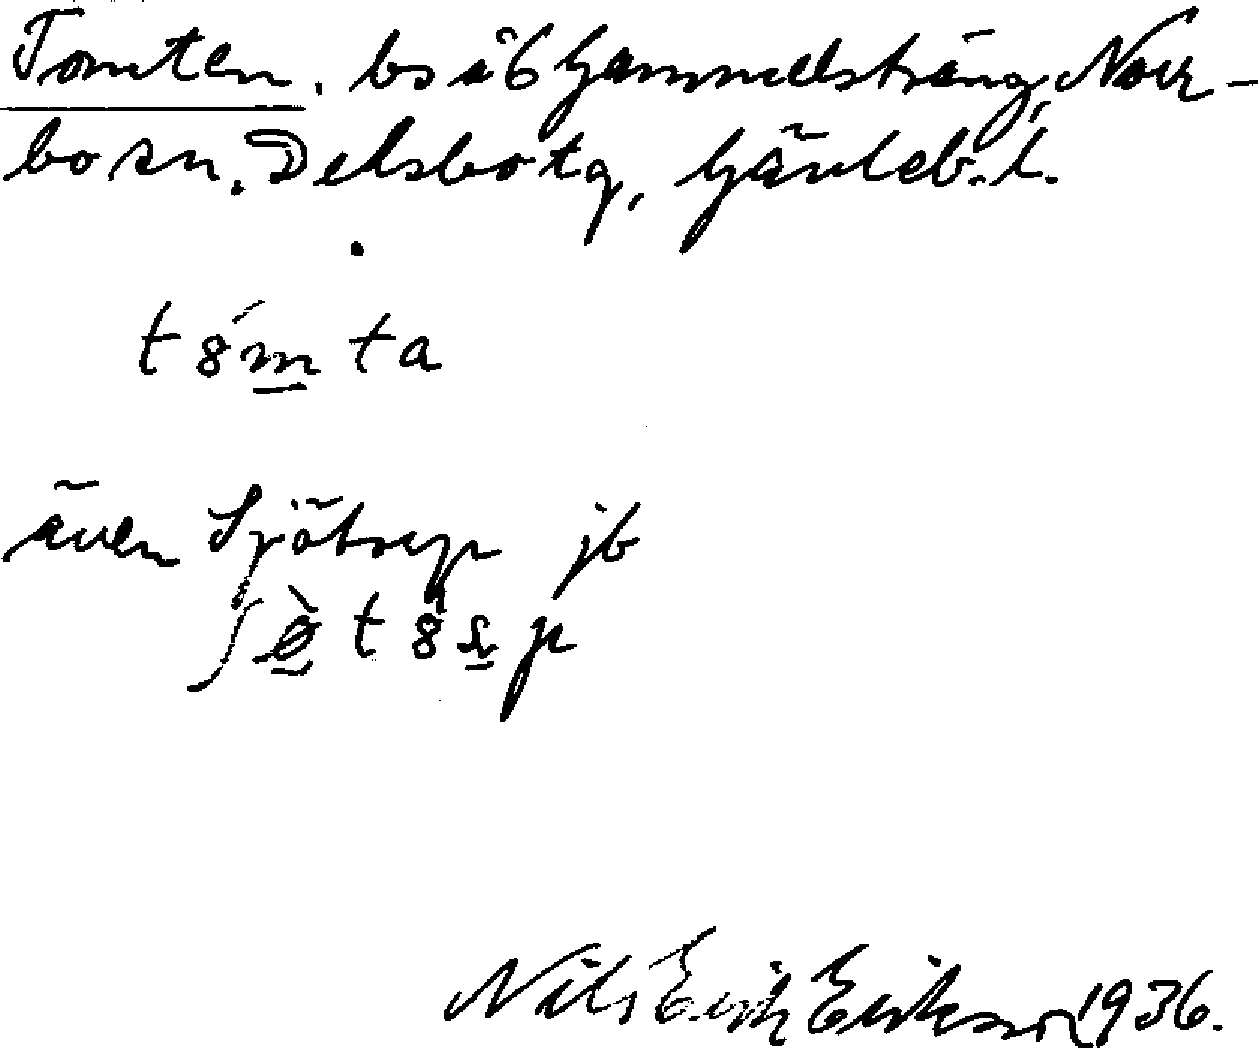 Tomten. bs åb Gammelsträng, Norr-
bo sn. Delsbo tg, Gävleb. l.
t8́m̲ta
även Sjötorp jb
t8 p
Nils Erik Eriksson 1936.